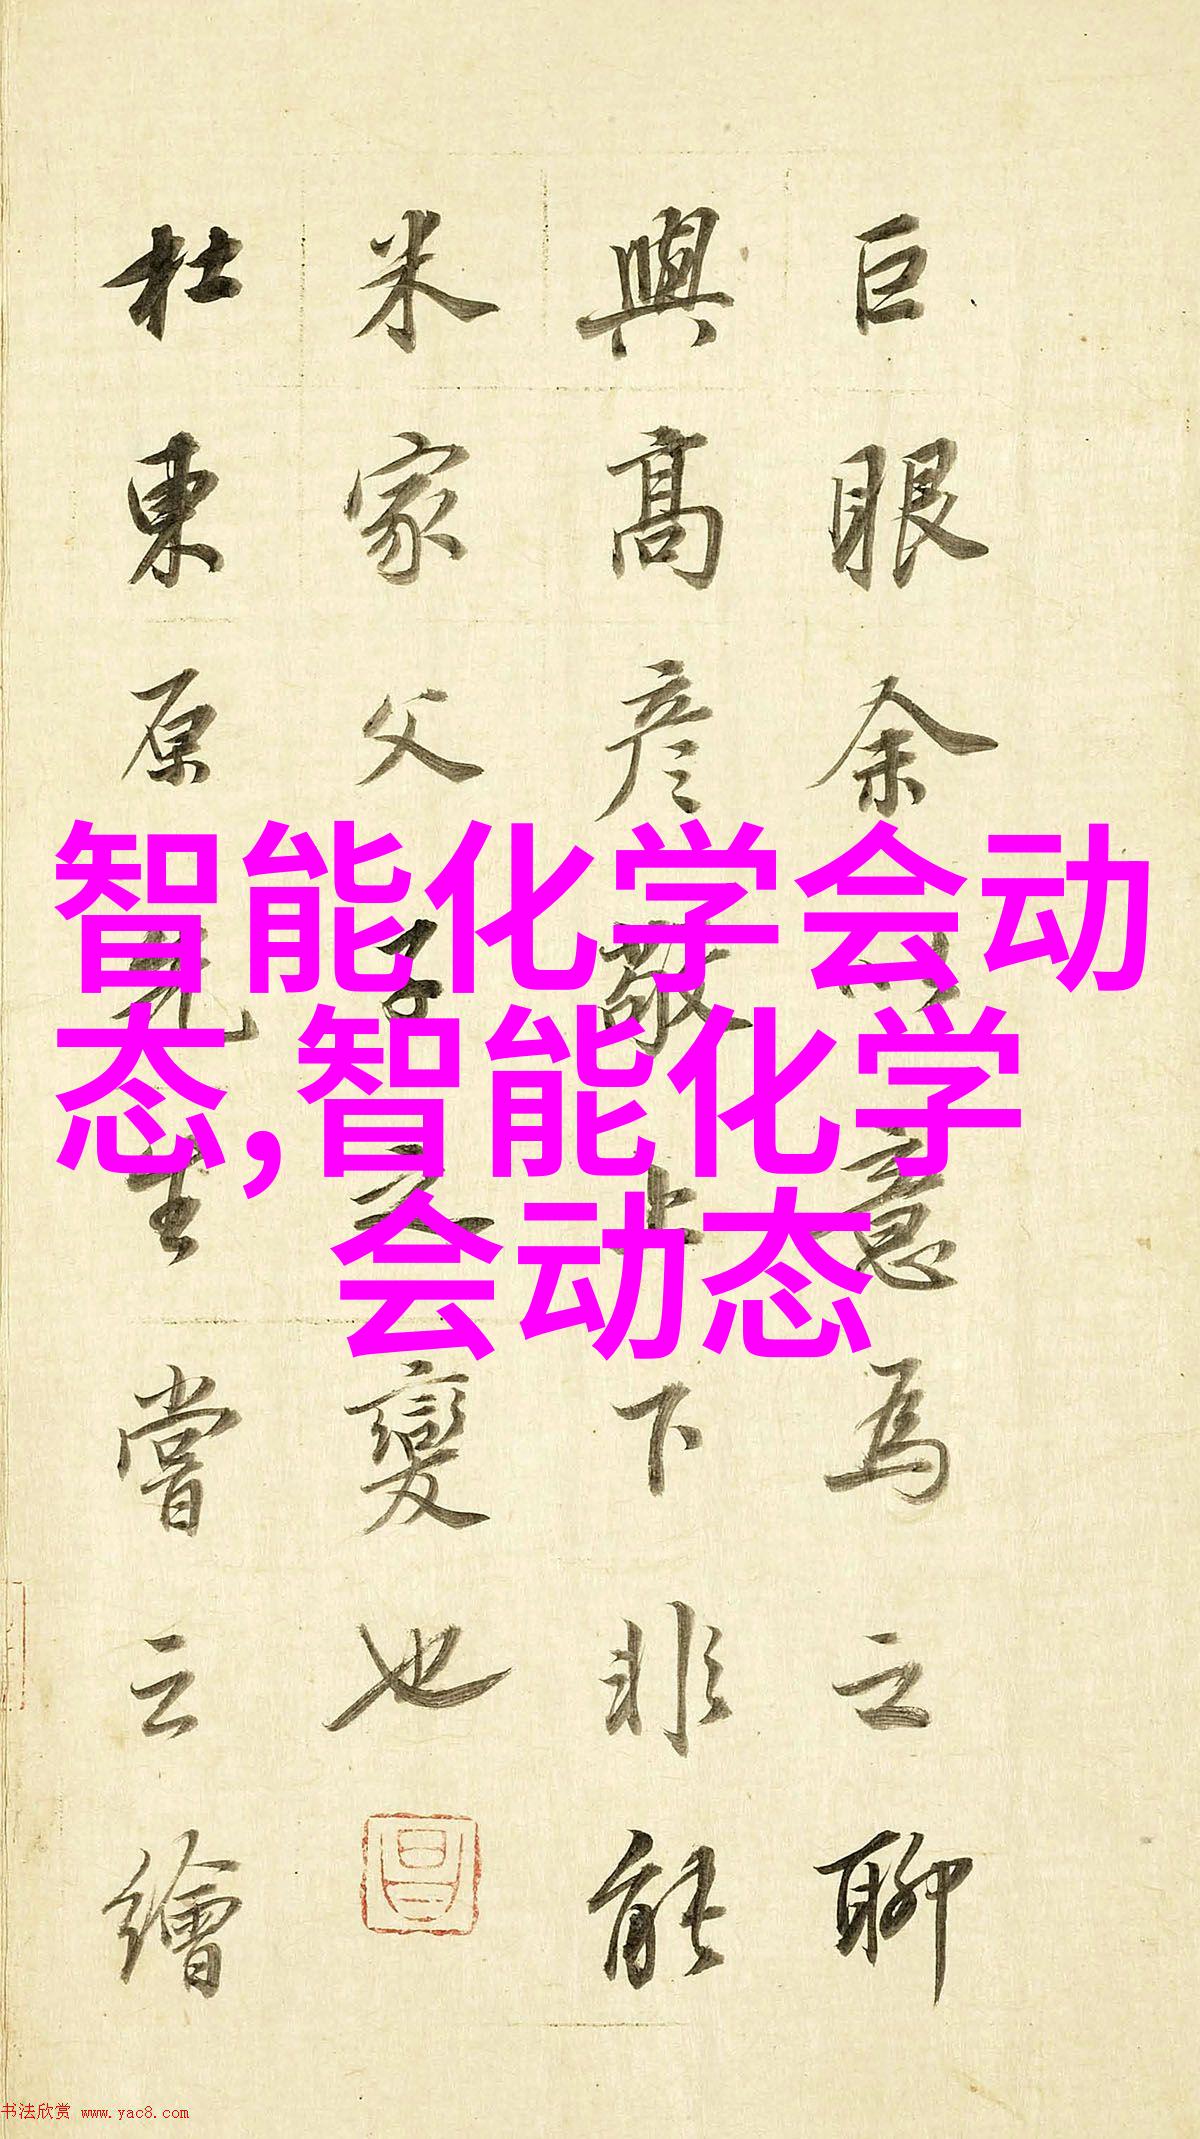 巨眼余以意為之聊
與高彦敬上下非能
米家父子之變也
杜東原先生嘗云繪
智能化学会动
态,智能化学
会动态
书法欣赏 www.yac8.com